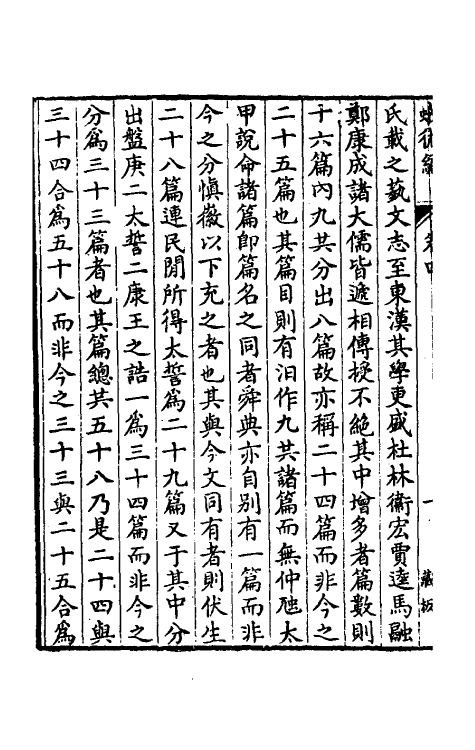 卷四
一
藏板
氏載之藝文志至東漢其學更盛杜林衛宏賈逵馬融
鄭康成諸大儒皆遞相傳授不絕其中增多者篇數則
十六篇內九共分出八篇故亦稱二十四篇而非今之
二十五篇也其篇目則有汨作九共諸篇而無仲虺太
甲說命諸篇即篇名之同者舜典亦自別有一篇而非
今之分愼徽以下充之者也其與今文同有者則伏生
二十八篇連民閒所得太誓為二十九篇又于其中分
出盤庚二太誓二康王之誥一為三十四篇而非今之
分為三十三篇者也其篇總共五十八乃是二十四與
三十四合為五十八而非今之三十三與二十五合為